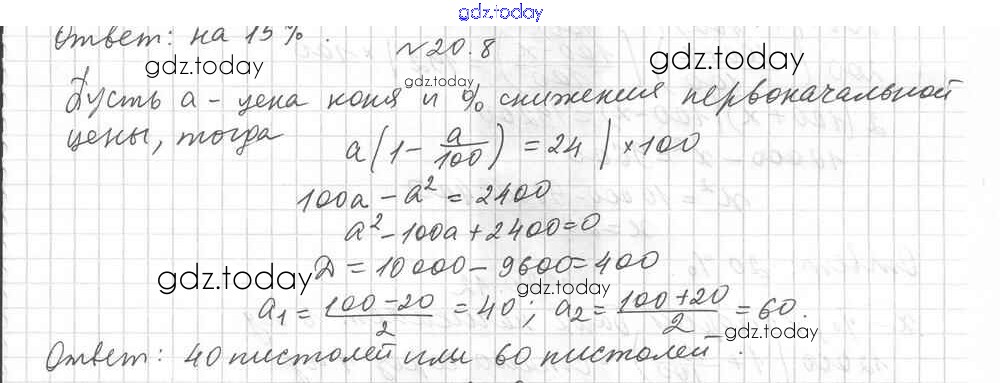 gdz.today
Ответ: на 15%.
№20.8
gdz.today
gdz.today
gdz.today
Пусть a - цена коня и % снижения первоначальной
цены, тогда
gdz.today
a(1 - a/100) = 24 | ×100
100a - a² = 2400
a² - 100a + 2400 = 0
Д = 10000 - 9600 = 400
gdz.today
gdz.today
a₁ = (100 - 20)/2 = 40; a₂ = (100 + 20)/2 = 60.
gdz.today
Ответ: 40 пистолей или 60 пистолей.